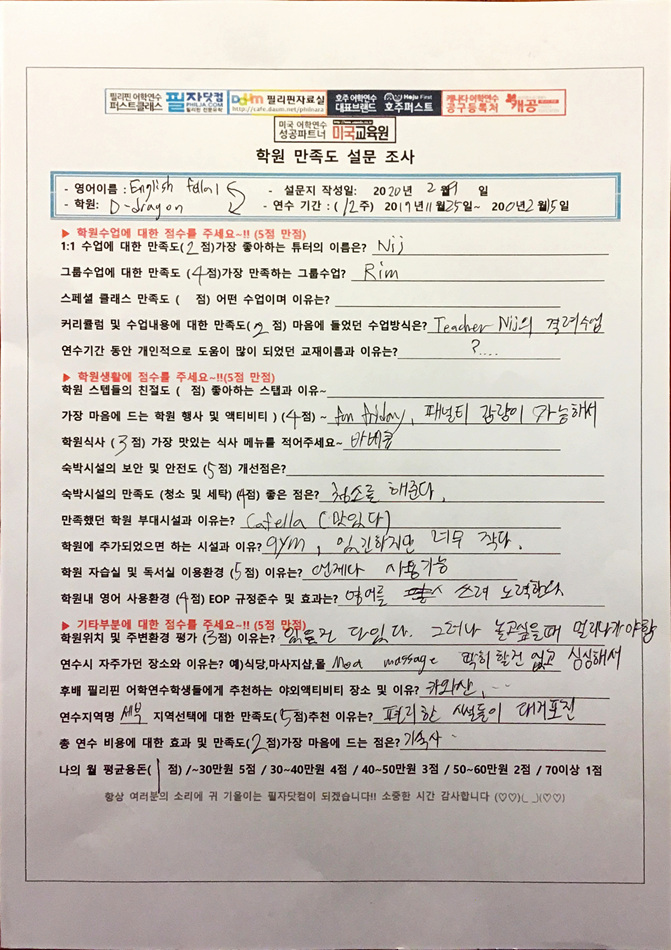 필리핀 어학연수 퍼스트클래스 필자닷컴 PHILJA.COM Daum 필리핀자료실 http://cafe.daum.net/philnara 호주 어학연수 대표브랜드 Hoju First 호주퍼스트 캐나다 어학연수 공구등록처 캐공
미국 어학연수 성공파트너 미국교육원
학원 만족도 설문 조사
- 영어이름 : English fella1 - 설문지 작성일: 2020년 2월 일
- 학원: D-dragon - 연수 기간 : (12주) 2019년11월25일~ 2020년2월15일
▶ 학원수업에 대한 점수를 주세요~!! (5점 만점)
1:1 수업에 대한 만족도(2점)가장 좋아하는 튜터의 이름은? Nij
그룹수업에 대한 만족도 (4점)가장 만족하는 그룹수업? Rim
스페셜 클래스 만족도 ( 점) 어떤 수업이며 이유는?
커리큘럼 및 수업내용에 대한 만족도(2점) 마음에 들었던 수업방식은? Teacher Nij의 격려수업
연수기간 동안 개인적으로 도움이 많이 되었던 교재이름과 이유는? ?....
▶ 학원생활에 점수를 주세요~!!(5점 만점)
학원 스텝들의 친절도 ( 점) 좋아하는 스탭과 이유~
가장 마음에 드는 학원 행사 및 액티비티 ) (4점) ~ fun friday, 패널티 감량이 가능해서
학원식사 (3점) 가장 맛있는 식사 메뉴를 적어주세요~ 바베큐
숙박시설의 보안 및 안전도 (5점) 개선점은?
숙박시설의 만족도 (청소 및 세탁) (4점) 좋은 점은? 청소를 해준다.
만족했던 학원 부대시설과 이유는? Cafella (맛있다)
학원에 추가되었으면 하는 시설과 이유? gym, 있긴하지만 너무 작다.
학원 자습실 및 독서실 이용환경 (5점) 이유는? 언제나 사용가능
학원내 영어 사용환경 (4점) EOP 규정준수 및 효과는? 영어를 쓰려 노력한다
▶ 기타부분에 대한 점수를 주세요~!! (5점 만점)
학원위치 및 주변환경 평가 (3점) 이유는? 있을건 다있다. 그러나 놀고싶을때 멀리나가야함
연수시 자주가던 장소와 이유는? 예)식당,마사지샵,몰 massage 딱히 할건 없고 심심해서
후배 필리핀 어학연수학생들에게 추천하는 야외액티비티 장소 및 이유? 카와산, ...
연수지역명 세부 지역선택에 대한 만족도(5점)추천 이유는? 편리한 시설들이 대거포진
총 연수 비용에 대한 효과 및 만족도(2점)가장 마음에 드는 점은? 기숙사.
나의 월 평균용돈(1점) /~30만원 5점 / 30~40만원 4점 / 40~50만원 3점 / 50~60만원 2점 / 70이상 1점
항상 여러분의 소리에 귀 기울이는 필자닷컴이 되겠습니다!! 소중한 시간 감사합니다 (♡♡)(_ _)(♡♡)